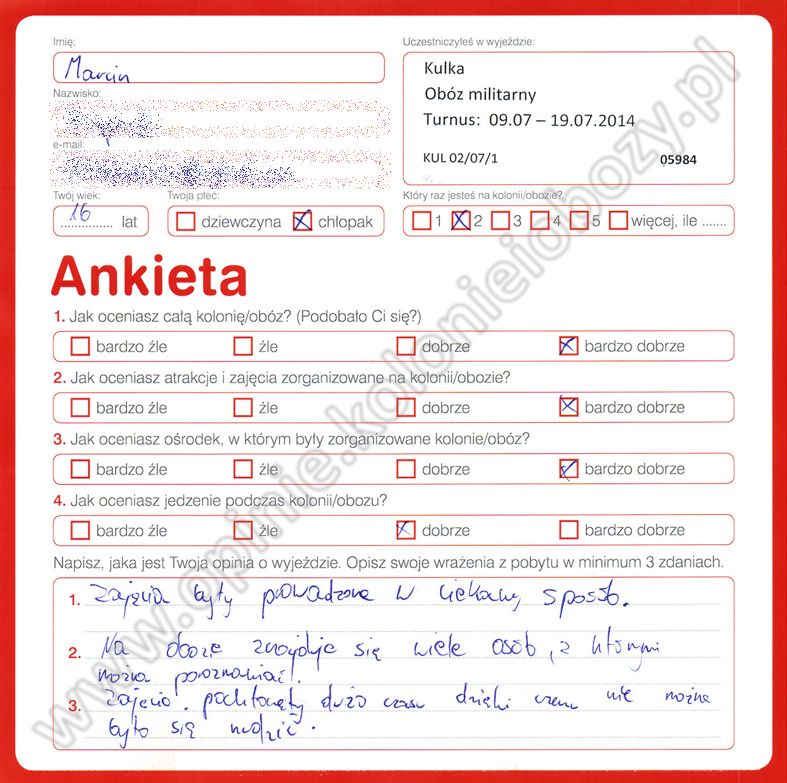 Imię:
Marcin
Nazwisko:
e-mail:
Twój wiek:
16 lat
Twoja płeć:
dziewczyna chłopak
Uczestniczyłeś w wyjeździe:
Kulka
Obóz militarny
Turnus: 09.07 – 19.07.2014
KUL 02/07/1 05984
Który raz jesteś na kolonii/obozie?
1 2 3 4 5 więcej, ile .......
Ankieta
1. Jak oceniasz całą kolonię/obóz? (Podobało Ci się?)
bardzo źle źle dobrze bardzo dobrze
2. Jak oceniasz atrakcje i zajęcia zorganizowane na kolonii/obozie?
bardzo źle źle dobrze bardzo dobrze
3. Jak oceniasz ośrodek, w którym były zorganizowane kolonie/obóz?
bardzo źle źle dobrze bardzo dobrze
4. Jak oceniasz jedzenie podczas kolonii/obozu?
bardzo źle źle dobrze bardzo dobrze
Napisz, jaka jest Twoja opinia o wyjeździe. Opisz swoje wrażenia z pobytu w minimum 3 zdaniach.
1. Zajęcia były prowadzone w ciekawy sposób.
2. Na obozie znajduje się wiele osób, z którymi
można porozmawiać.
3. Zajęcia pochłonęły dużo czasu dzięki czemu nie można
było się nudzić.
www.opinie.kolonieiobozy.pl